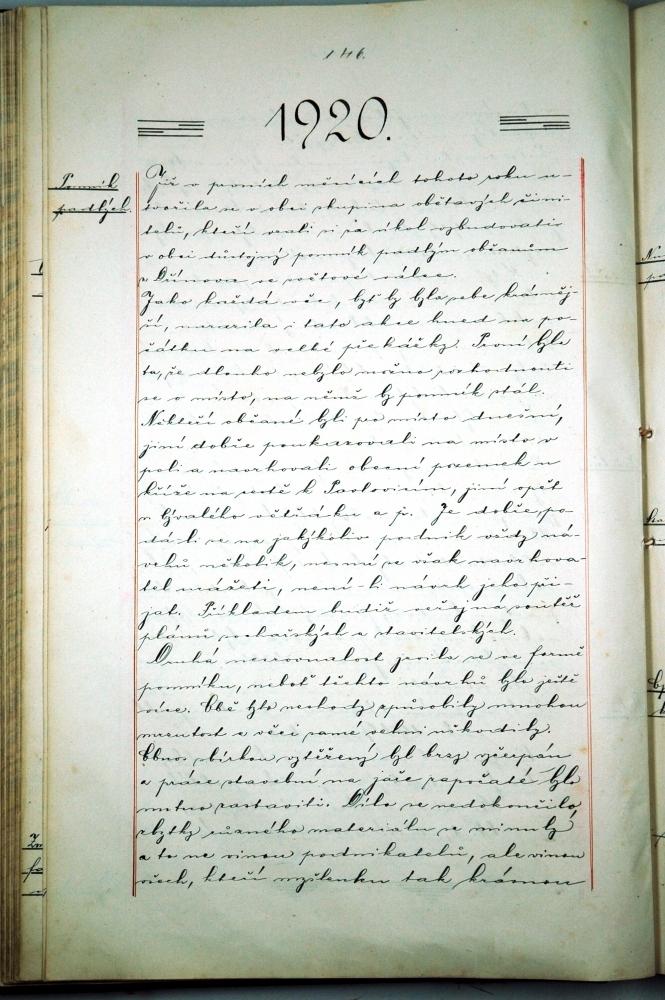 146.
1920.
Pomník
padlých.
Již v prvních měsících tohoto roku u-
tvořila se v obci skupina obětavých čini-
telů, kteří vzali si za úkol vybudovati
v obci důstojný pomník padlým občanům
z Dřínova ve světové válce.
Jako každá věc, byť by byla sebe krásněj-
ší, narazila i tato akce hned na po-
čátku na velké překážky. První byla
ta, že dlouho nebylo možno pohodnouti
se o místo, na němž by pomník stál.
Někteří občané byli pro místo dnešní,
jiní dobře poukazovali na místo v
poli a navrhovali obecní pozemek u
kříže na cestě k Pavlovicím, jiní opět
u bývalého větrníku a j. Je dobře, po-
dá-li se na jakýkoliv podnik vždy ná-
vrhů několik, nesmí se však navrhova-
tel urážeti, není-li návrh jeho při-
jat. Příkladem budiž veřejná soutěž
plánů sochařských a stavitelských.
Druhá nesrovnalost jevila se ve formě
pomníku, neboť těchto návrhů bylo ještě
více. Obě tyto neshody způsobily mnohou
mrzutost a věci samé velmi uškodily.
Obnos sbírkou vytěžený byl brzy vyčerpán
a práce stavební na jaře započaté bylo
nutno zastaviti. Dílo se nedokončilo,
zbytky různého materiálu se minuly
a to ne vinou podnikatelů, ale vinou
všech, kteří myšlenku tak krásnou